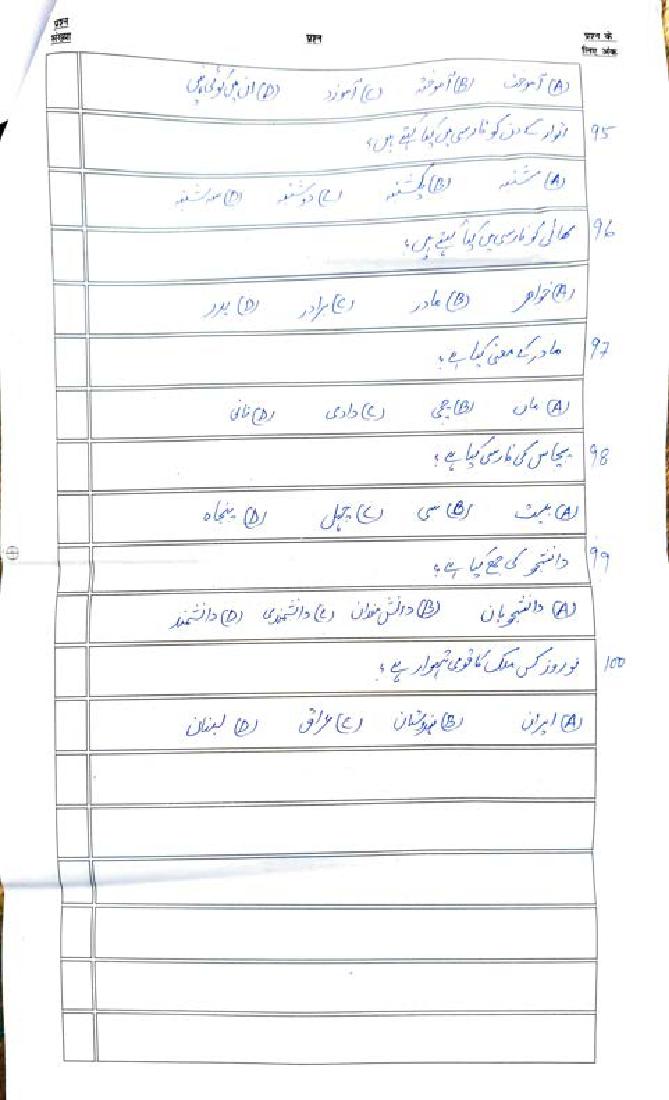 प्रश्न संख्या
प्रश्न
प्रश्न के लिए अंक
(A) آموخت (B) آموختہ (C) آموزد (D) ان میں کوئی نہیں
95 اتوار کے دن کو فارسی میں کیا کہتے ہیں؟
(A) شنبہ (B) یکشنبہ (C) دوشنبہ (D) سہ شنبہ
96 بھائی کو فارسی میں کیا کہتے ہیں؟
(A) خواہر (B) مادر (C) برادر (D) پدر
97 مادر کے معنی کیا ہے؟
(A) ماں (B) چچی (C) دادی (D) نانی
98 پچاس کی فارسی کیا ہے؟
(A) بیست (B) سی (C) چہل (D) پنجاہ
99 دانشجو کی جمع کیا ہے؟
(A) دانشجویان (B) دانش مندان (C) دانشمندی (D) دانشمند
100 نوروز کس ملک کا قومی تہوار ہے؟
(A) ایران (B) ہندوستان (C) عراق (D) لبنان